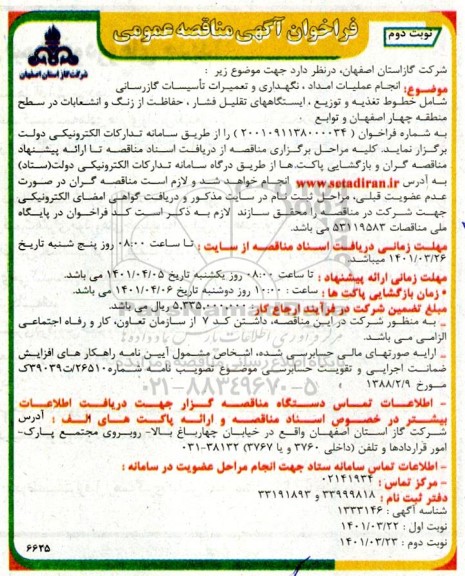 نوبت دوم
فراخوان آگهی مناقصه عمومی
شرکت گاز استان اصفهان
شرکت گازاستان اصفهان، درنظر دارد جهت موضوع زیر :
موضوع: انجام عملیات امداد ، نگهداری و تعمیرات تأسیسات گازرسانی
شامل خطوط تغذیه و توزیع ، ایستگاههای تقلیل فشار ، حفاظت از زنگ و انشعابات در سطح
منطقه چهار اصفهان و توابع .
به شماره فراخوان ( ۲۰۰۱۰۹۱۱۳۸۰۰۰۰۳۴ ) را از طریق سامانه تدارکات الکترونیکی دولت
برگزار نماید. کلیه مراحل برگزاری مناقصه از دریافت اسناد مناقصه تا ارائه پیشنهاد
مناقصه گران و بازگشایی پاکت ها از طریق درگاه سامانه تدارکات الکترونیکی دولت(ستاد)
به آدرس www.setadiran.ir انجام خواهد شد و لازم است مناقصه گران در صورت
عدم عضویت قبلی، مراحل ثبت نام در سایت مذکور و دریافت گواهی امضای الکترونیکی
جهت شرکت در مناقصه را محقق سازند لازم به ذکر است کد فراخوان در پایگاه
ملی مناقصات ۵۳۱۹۵۸۳ می باشد.
مهلت زمانی دریافت اسناد مناقصه از سایت : تا ساعت ۰۸:۰۰ روز پنج شنبه تاریخ
۱۴۰۱/۰۳/۲۶ میباشد.
مهلت زمانی ارائه پیشنهاد : تا ساعت ۰۸:۰۰ روز یکشنبه تاریخ ۱۴۰۱/۰۴/۰۵ می باشد.
• زمان بازگشایی پاکت ها : ساعت : ۱۰:۰۰ روز دوشنبه تاریخ ۱۴۰۱/۰۴/۰۶ می باشد.
مبلغ تضمین شرکت در فرآیند ارجاع کار ۵.۳۳۵.۰۰۰.۰۰۰ ریال می باشد.
- به منظور شرکت در این مناقصه، داشتن کد ۷ از سازمان تعاون، کار و رفاه اجتماعی
الزامی می باشد.
- ارایه صورتهای مالی حسابرسی شده، اشخاص مشمول آیین نامه راهکار های افزایش
ضمانت اجرایی و تقویت حسابرسی موضوع تصویب نامه شماره ۲۶۵۱۰/ت۳۹۰۳۹ک
مورخ ۱۳۸۸/۲/۹
- اطلاعات تماس دستگاه مناقصه گزار جهت دریافت اطلاعات
بیشتر در خصوص اسناد مناقصه و ارائه پاکت های الف : آدرس
شرکت گاز استان اصفهان واقع در خیابان چهارباغ بالا- روبروی مجتمع پارک-
امور قراردادها و تلفن (داخلی ۳۷۶۰ و یا ۳۷۶۷) ۳۸۱۳۲-۰۳۱
- اطلاعات تماس سامانه ستاد جهت انجام مراحل عضویت در سامانه :
- مرکز تماس : ۰۲۱۴۱۹۳۴
دفتر ثبت نام : ۳۳۹۹۹۸۱۸ و ۳۳۱۹۱۸۹۳
شناسه آگهی : ۱۳۳۳۱۴۶
نوبت اول : ۱۴۰۱/۰۳/۲۲
نوبت دوم : ۱۴۰۱/۰۳/۲۳
۶۶۲۵
۰۲۱-۸۸۳۴۹۶۷۰-۵